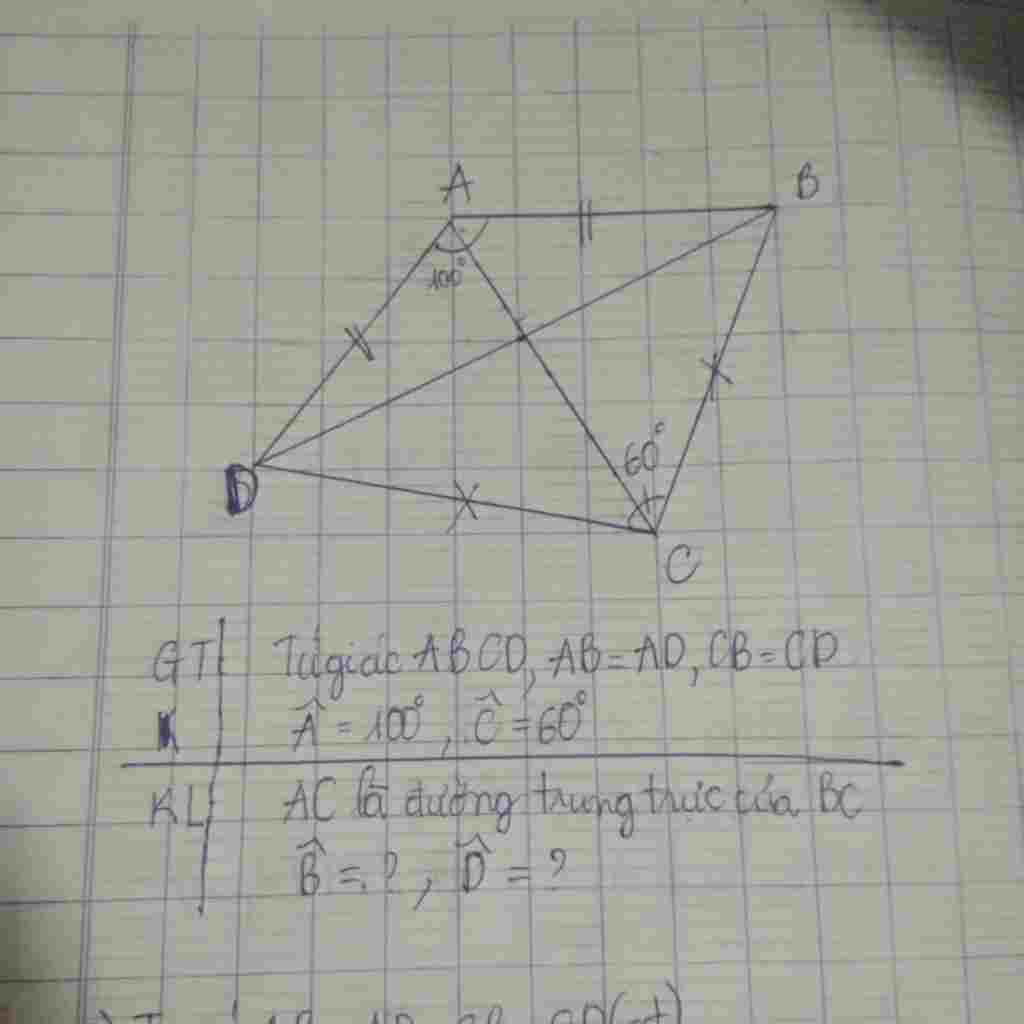 A
B
100°
60°
D
C
GT Tứ giác ABCD, AB = AD, CB = CD
Â = 100°, Ĉ = 60°
KL AC là đường trung trực của BC
B̂ = ?, D̂ = ?